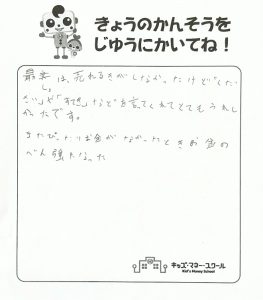 きょうのかんそうを
じゆうにかいてね！
最初は、売れるきがしなかったけど「くだ
さい」や「すごい」などを言ってくれてとてもうれし
かったです。
またぴったりお金がなかったときお金の
べん強になった
キッズ・マネー・スクール
Kid's Money School